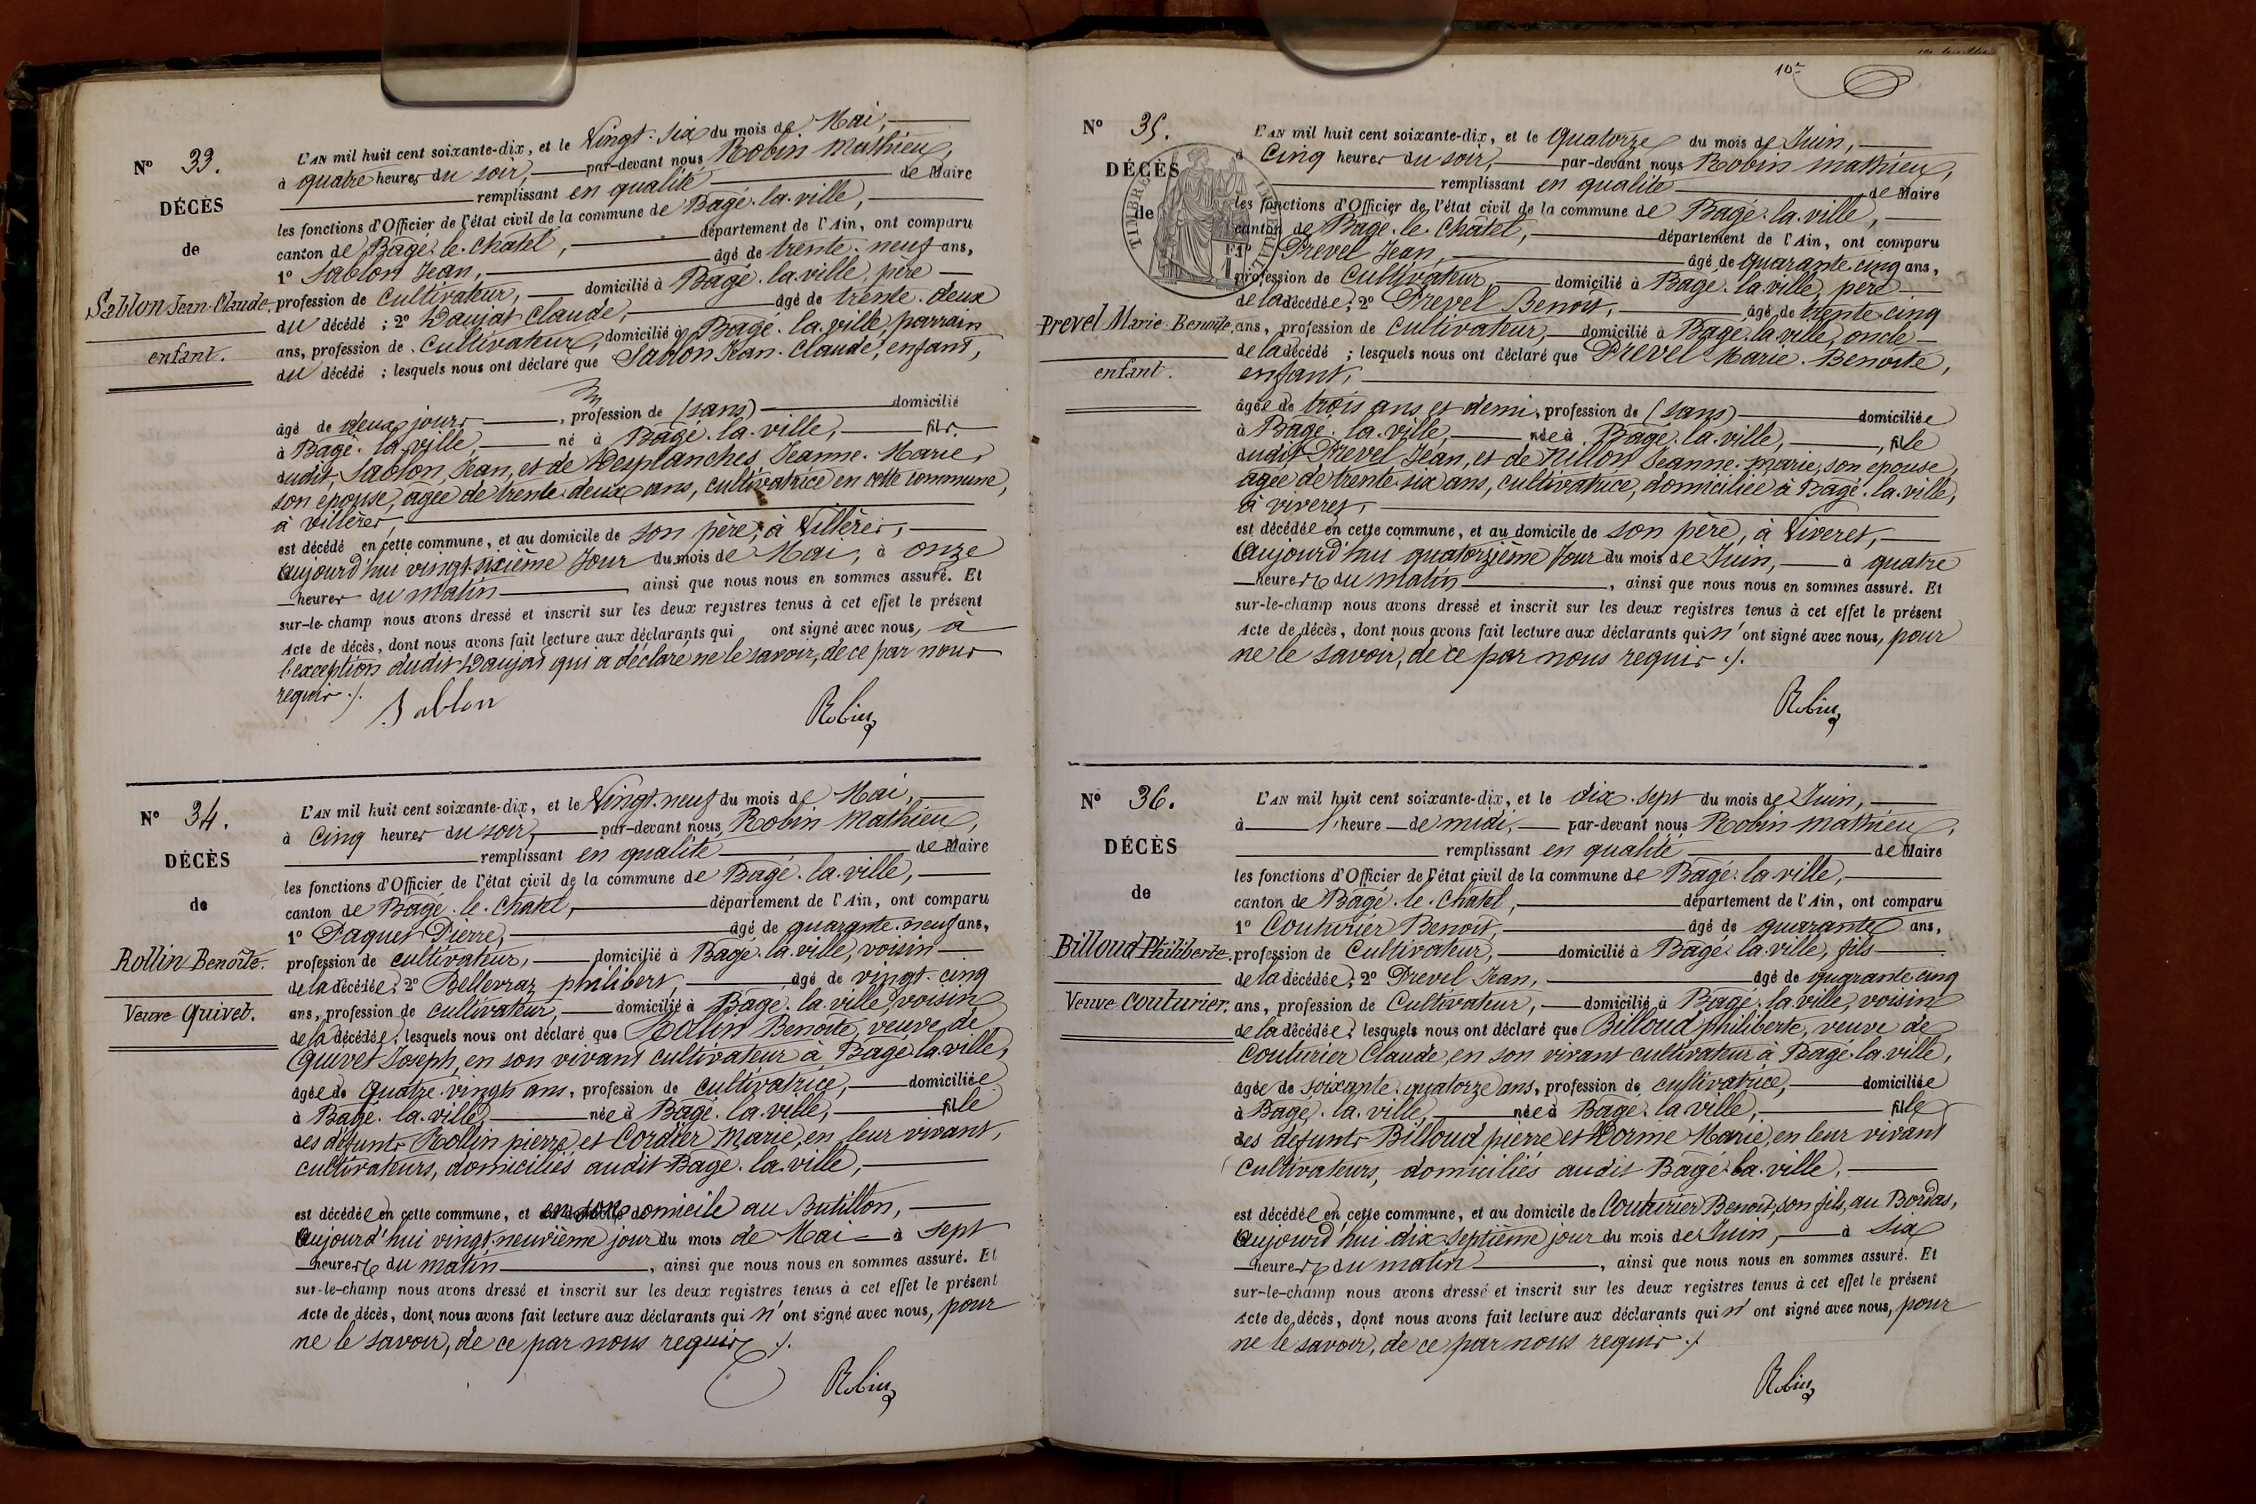 N° 33.
DÉCÈS
de
Sablon Jean-Claude.
enfant.
L'AN mil huit cent soixante-dix, et le Vingt-six du mois de Mai,
à quatre heures du soir, par-devant nous Robin Mathieu,
remplissant en qualité de Maire
les fonctions d'Officier de l'état civil de la commune de Bagé-la-ville,
canton de Bagé-le-Chatel, département de l'Ain, ont comparu
1° Sablon Jean, âgé de trente-neuf ans,
profession de Cultivateur, domicilié à Bagé-la-ville, père
du décédé ; 2° Daujat Claude, âgé de trente-deux
ans, profession de Cultivateur, domicilié à Bagé-la-ville, parrain
du décédé ; lesquels nous ont déclaré que Sablon Jean-Claude, enfant,
âgé de deux jours, profession de (sans) domicilié
à Bagé-la-ville, né à Bagé-la-ville, fils
dudit Sablon, Jean, et de Desplanches Jeanne-Marie,
son épouse, agée de trente deux ans, cultivatrice en cette commune,
à Villères,
est décédé en cette commune, et au domicile de son père, à Villères,
aujourd'hui vingt-sixième Jour du mois de Mai, à onze
heures du matin, ainsi que nous nous en sommes assuré. Et
sur-le-champ nous avons dressé et inscrit sur les deux registres tenus à cet effet le présent
Acte de décès, dont nous avons fait lecture aux déclarants qui ont signé avec nous, à
l'exception dudit Daujat qui a déclaré ne le savoir, de ce par nous
requis ./.
Sablon Robin
N° 34.
DÉCÈS
de
Rollin Benoîte.
Veuve Quivet.
L'AN mil huit cent soixante-dix, et le Vingt-neuf du mois de Mai,
à Cinq heures du soir, par-devant nous Robin Mathieu,
remplissant en qualité de Maire
les fonctions d'Officier de l'état civil de la commune de Bagé-la-ville,
canton de Bagé-le-Chatel, département de l'Ain, ont comparu
1° Paquet Pierre, âgé de quarante-neuf ans,
profession de cultivateur, domicilié à Bagé-la-ville, voisin
de la décédée ; 2° Bellevraz philibert, âgé de vingt-cinq
ans, profession de cultivateur, domicilié à Bagé-la-ville, voisin
de la décédée, lesquels nous ont déclaré que Rollin Benoîte, veuve de
Quivet Joseph, en son vivant cultivateur à Bagé-la-ville,
âgée de quatre-vingts ans, profession de cultivatrice, domiciliée
à Bagé-la-ville née à Bagé-la-ville, fille
des défunts Rollin pierre, et Cordier Marie, en leur vivant,
cultivateurs, domiciliés audit Bagé-la-ville,
est décédée en cette commune, et en son domicile au Butillon,
aujourd'hui vingt-neuvième jour du mois de Mai à sept
heures du matin, ainsi que nous nous en sommes assuré. Et
sur-le-champ nous avons dressé et inscrit sur les deux registres tenus à cet effet le présent
Acte de décès, dont nous avons fait lecture aux déclarants qui n'ont signé avec nous, pour
ne le savoir, de ce par nous requis ./.
Robin
10e
N° 35.
DÉCÈS
de
Prevel Marie-Benoîte,
enfant.
TIMBRE
L'AN mil huit cent soixante-dix, et le Quatorze du mois de Juin,
à Cinq heures du soir, par-devant nous Robin Mathieu,
remplissant en qualité de Maire
les fonctions d'Officier de l'état civil de la commune de Bagé-la-ville,
canton de Bagé-le-Châtel, département de l'Ain, ont comparu
1° Prevel Jean, âgé de quarante cinq ans,
profession de Cultivateur, domicilié à Bagé-la-ville, père
de la décédée ; 2° Prevel Benoit, âgé de trente-cinq
ans, profession de Cultivateur, domicilié à Bagé-la-ville, oncle
de la décédé ; lesquels nous ont déclaré que Prevel Marie-Benoite,
enfant,
âgée de trois ans et demi, profession de (sans) domiciliée
à Bagé-la-ville, née à Bagé-la-ville, fille
dudit Prevel Jean, et de Nillon Jeanne-Marie, son épouse,
agée de trente-six ans, cultivatrice, domiciliée à Bagé-la-ville,
à viveret,
est décédée en cette commune, et au domicile de son père, à Viveret,
aujourd'hui quatorzième Jour du mois de Juin, à quatre
heures du matin, ainsi que nous nous en sommes assuré. Et
sur-le-champ nous avons dressé et inscrit sur les deux registres tenus à cet effet le présent
Acte de décès, dont nous avons fait lecture aux déclarants qui n'ont signé avec nous, pour
ne le savoir, de ce par nous requis ./.
Robin
N° 36.
DÉCÈS
de
Billoud Philiberte.
Veuve Couturier.
L'AN mil huit cent soixante-dix, et le dix-sept du mois de Juin,
à l'heure de midi, par-devant nous Robin Mathieu,
remplissant en qualité de Maire
les fonctions d'Officier de l'état civil de la commune de Bagé-la-ville,
canton de Bagé-le-Chatel, département de l'Ain, ont comparu
1° Couturier Benoit, âgé de quarante ans,
profession de Cultivateur, domicilié à Bagé-la-ville, fils
de la décédée ; 2° Prevel Jean, âgé de quarante-cinq
ans, profession de Cultivateur, domicilié à Bagé-la-ville, voisin
de la décédée ; lesquels nous ont déclaré que Billoud philiberte, veuve de
Couturier Claude, en son vivant cultivateur à Bagé-la-ville,
âgée de soixante-quatorze ans, profession de cultivatrice, domiciliée
à Bagé-la-ville, née à Bagé-la-ville, fille
des défunts Billoud pierre et Dorme Marie, en leur vivant
Cultivateurs, domiciliés audit Bagé-la-ville,
est décédée en cette commune, et au domicile de Couturier Benoit, son fils, au Bordas,
aujourd'hui dix-septième jour du mois de Juin, à six
heures du matin, ainsi que nous nous en sommes assuré. Et
sur-le-champ nous avons dressé et inscrit sur les deux registres tenus à cet effet le présent
Acte de décès, dont nous avons fait lecture aux déclarants qui n'ont signé avec nous, pour
ne le savoir, de ce par nous requis ./.
Robin